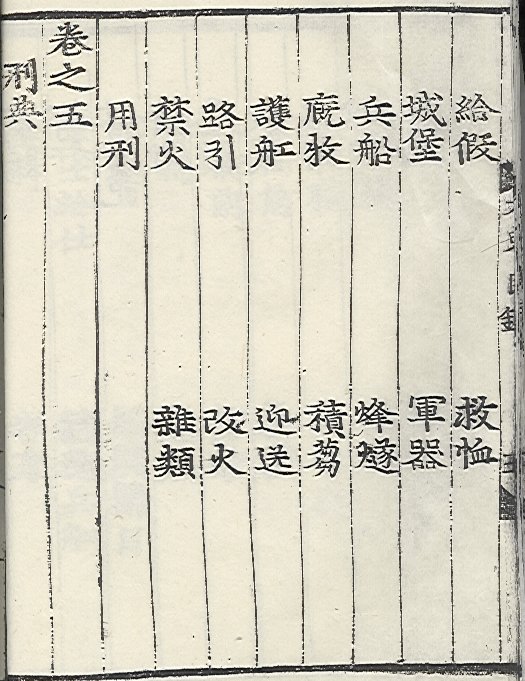 給假 救恤
城堡 軍器
兵船 烽燧
廐牧 積芻
護船 迎送
路引 改火
禁火 雜類
用刑
卷之五
刑典